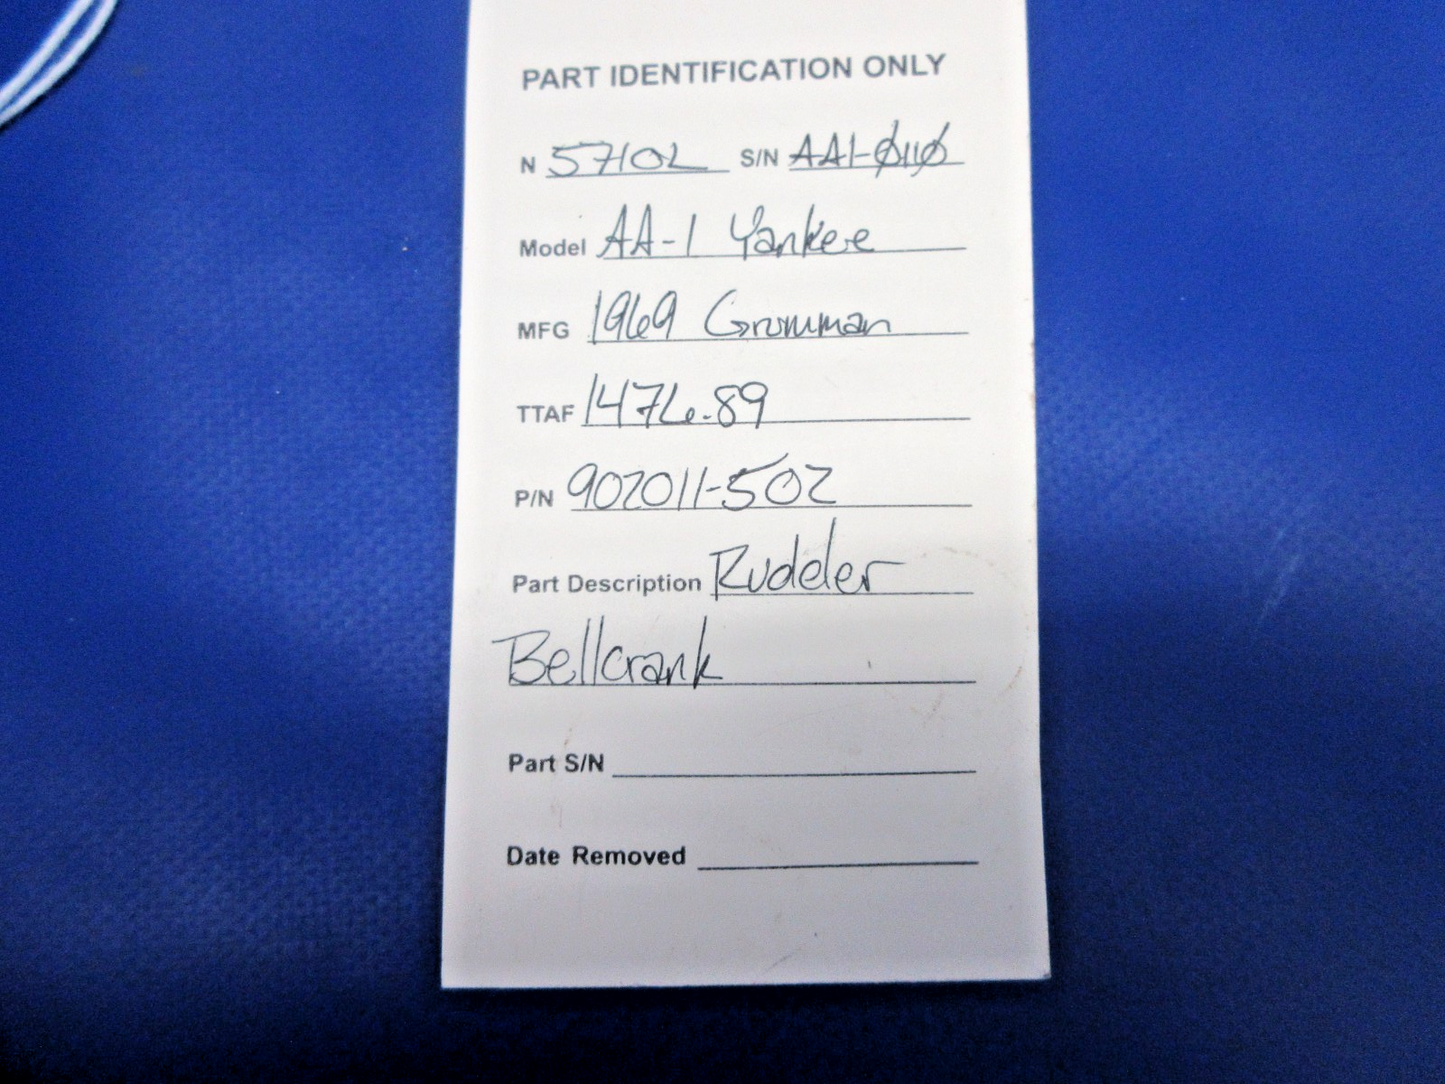 PART IDENTIFICATION ONLY
N 5710L S/N AA1-0110
Model AA-1 Yankee
MFG 1969 Grumman
TTAF 1476.89
P/N 902011-502
Part Description Rudder
Bellcrank
Part S/N
Date Removed